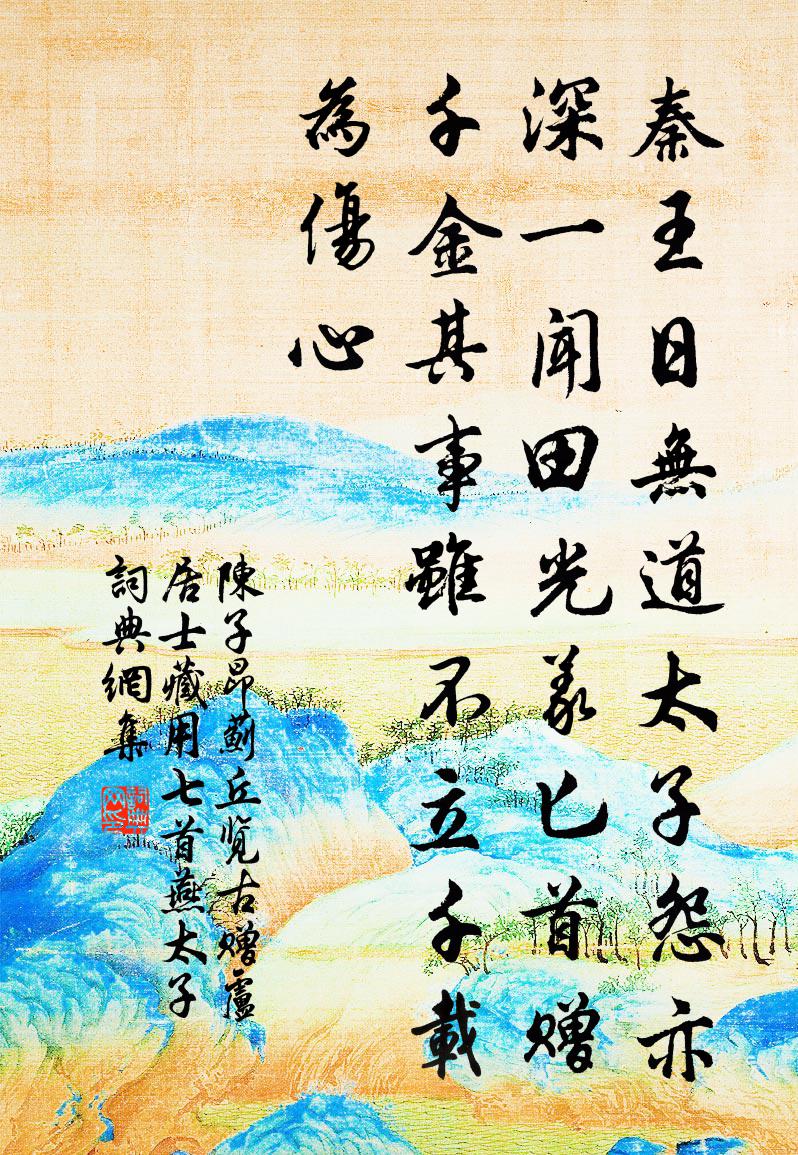 秦王日無道太子怨亦
深一聞田光義匕首贈
千金其事雖不立千載
為傷心
陳子昂薊丘覽古贈盧
居士藏用七首燕太子
詞典網集